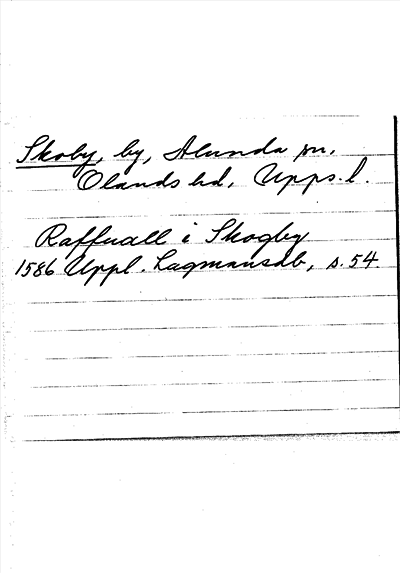 Skoby, by, Alunda sn,
Olands hd, Upps. l.
Raffuall i Skogby
1586 Uppl. Lagmansdb, s. 54